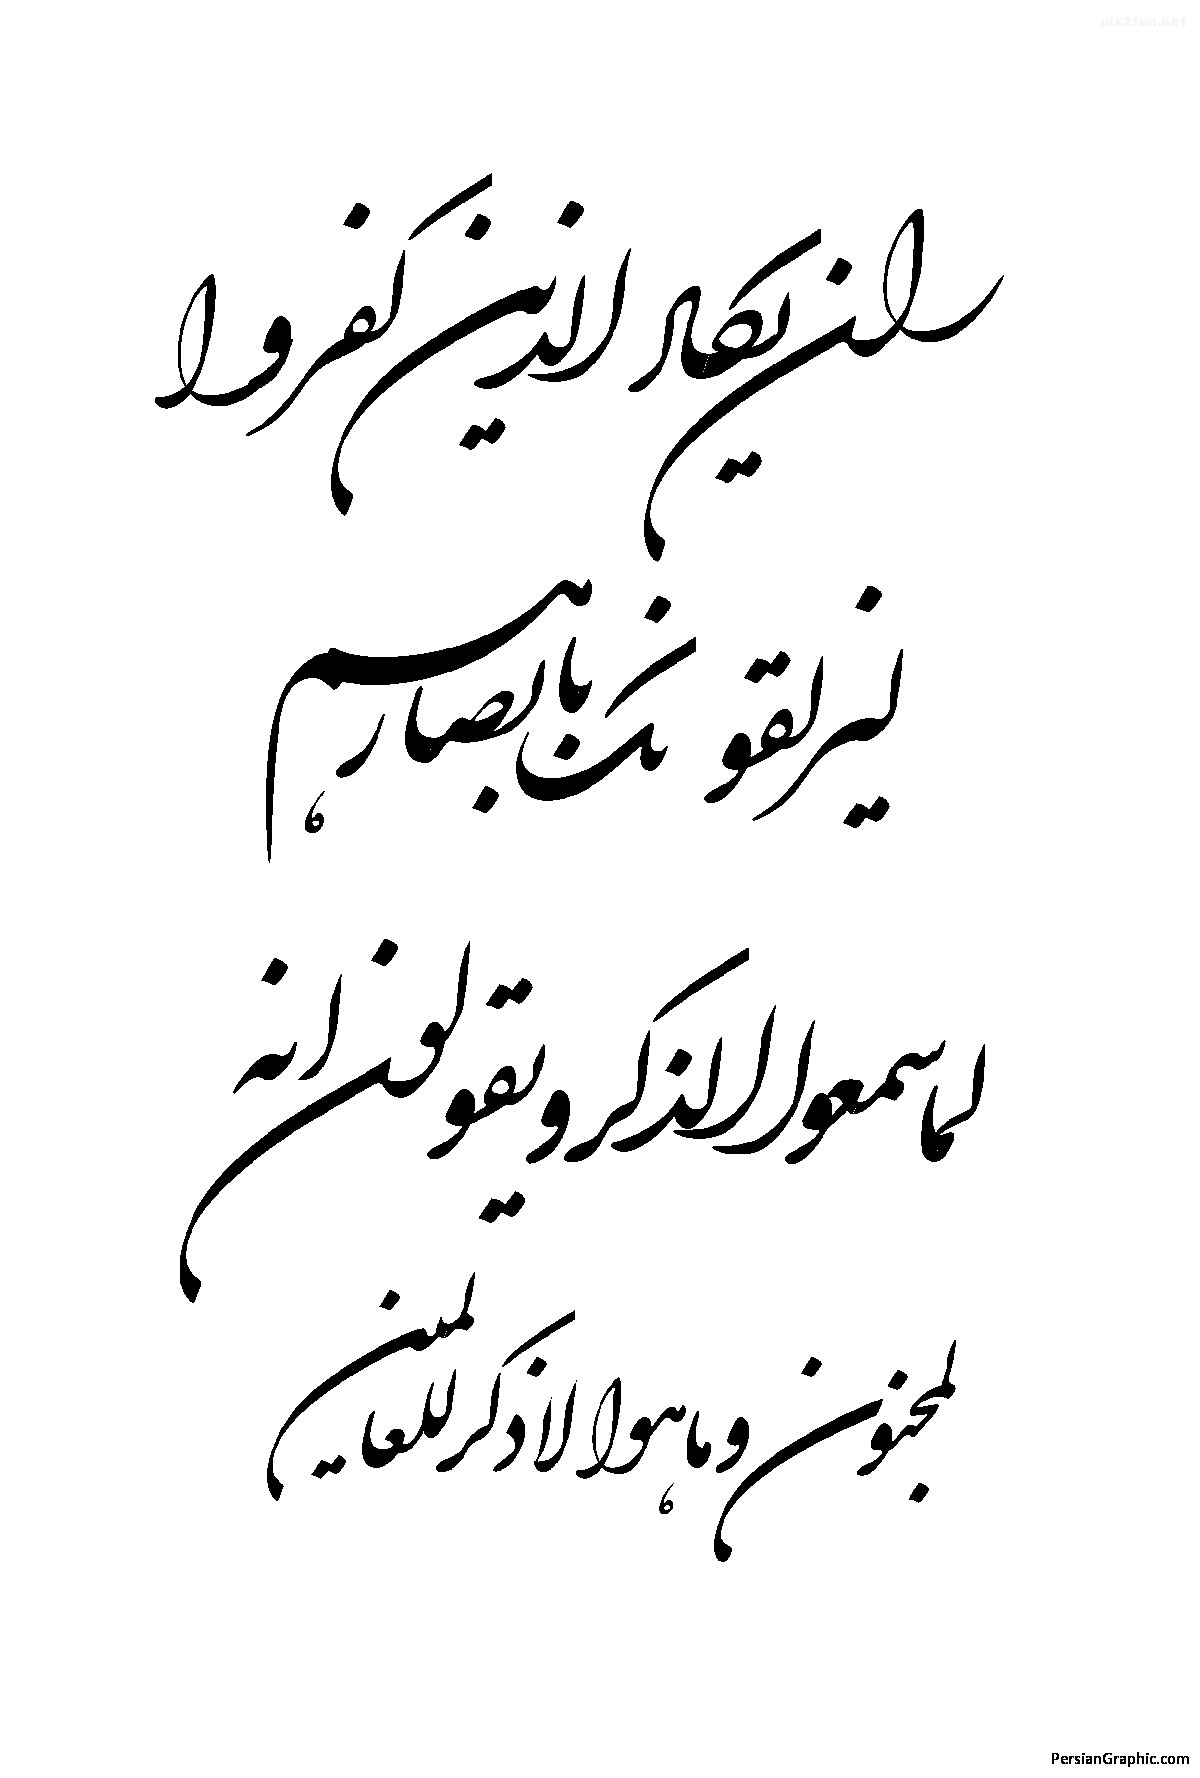 pix2fun.net
وان یکاد الذین کفروا
لیزلقونک بابصارهم
لما سمعوا الذکر و یقولون انه
لمجنون و ما هو الا ذکر للعالمین
PersianGraphic.com